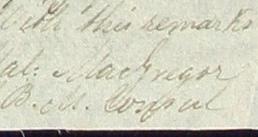 With this remarks
Mal: MacGregor
B. M. Consul